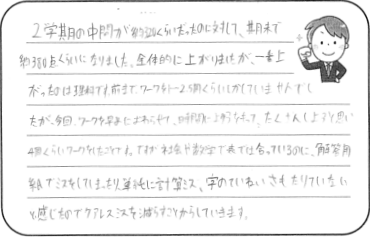 2学期の中間が約320くらいだったのに対して、期末で
約380点くらいになりました。全体的に上がりましたが、一番上
がったのは理科です。前まで、ワークを1〜2周くらいしかしていませんでし
たが、今回、ワークを早めに終わらせ、たくさんしようと思い
4周くらいワークをしたことです。ですが社会や数学で表では合っているのに、解答用
紙でミスをしてしまったり、単純に計算ミス、字のていねいさもたりていない
と感じたのでケアレスミスを減らすことからしていきます。